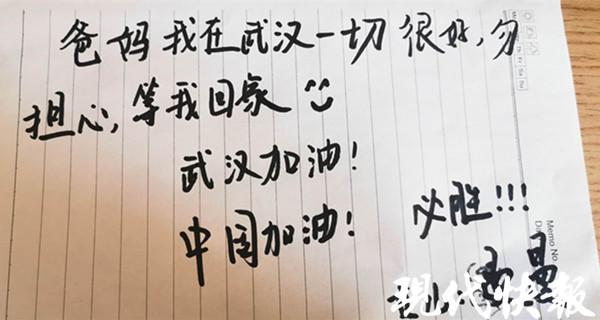 爸妈我在武汉一切很好,勿
担心,等我回家
武汉加油!
中国加油! 必胜!!!
Memo No
现代快报